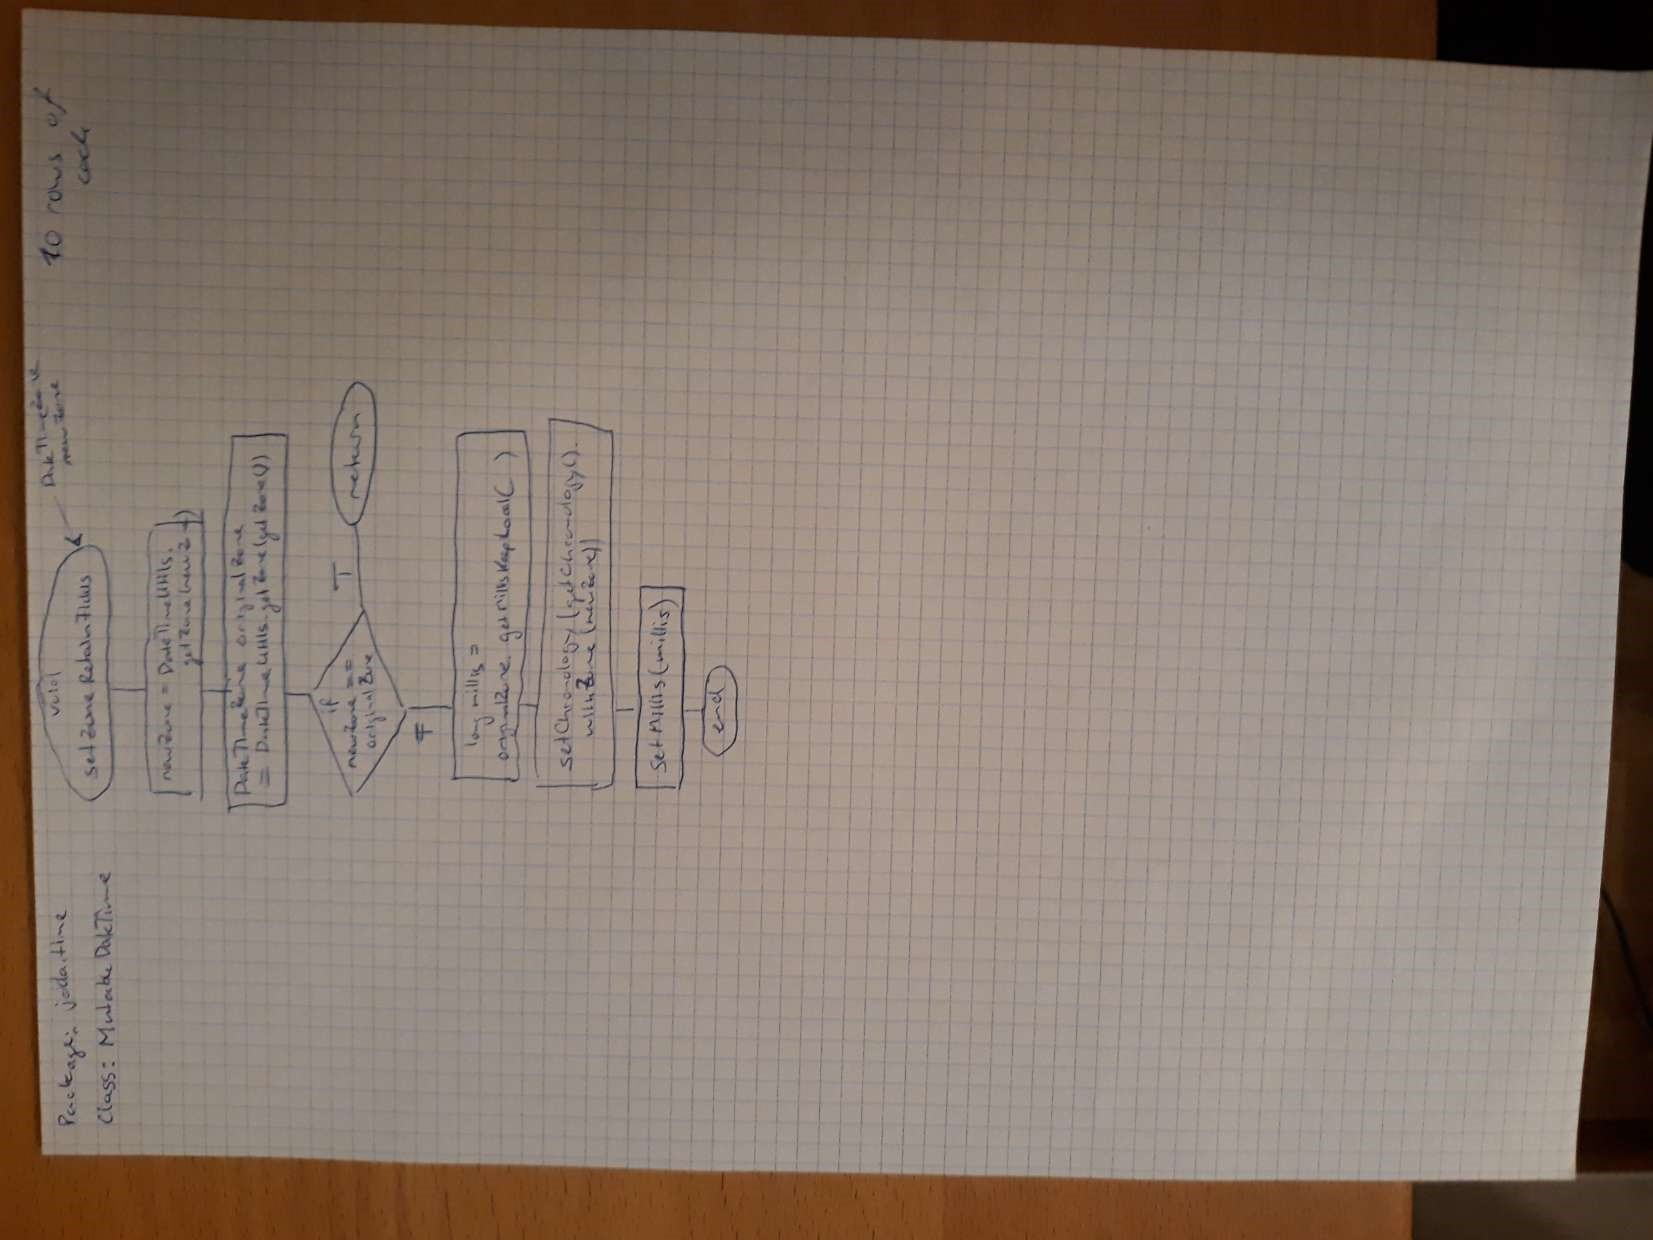 Package: joda.time
Class: MutableDateTime
10 rows of
code
DateTimeZone
newZone
void
setZoneRetainFields
newZone = DateTimeUtils.
getZone(newZ
DateTimeZone originalZone
= DateTimeUtils.getZone(getZone())
if
newZone ==
originalZone
T
return
F
long millis =
originalZone.getMillisKeepLocal( )
setChronology(getChronology().
withZone(newZone))
setMillis(millis)
end